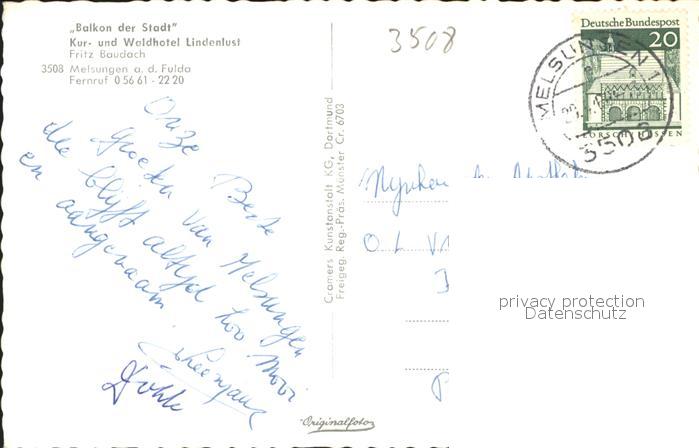 „Balkon der Stadt"
Kur- und Waldhotel Lindenlust
Fritz Baudach
3508 Melsungen a. d. Fulda
Fernruf 0 56 61 - 22 20
3508
Deutsche Bundespost
20
MELSUNGEN 1
3508
Onze Beste
Groeten van Melsungen
die blijft altijd zoo mooi
en aangenaam
Cramers Kunstanstalt KG, Dortmund
Freigeg. Reg.-Präs. Münster Cr. 6703
O. L. V
privacy protection
Datenschutz
Originalfoto